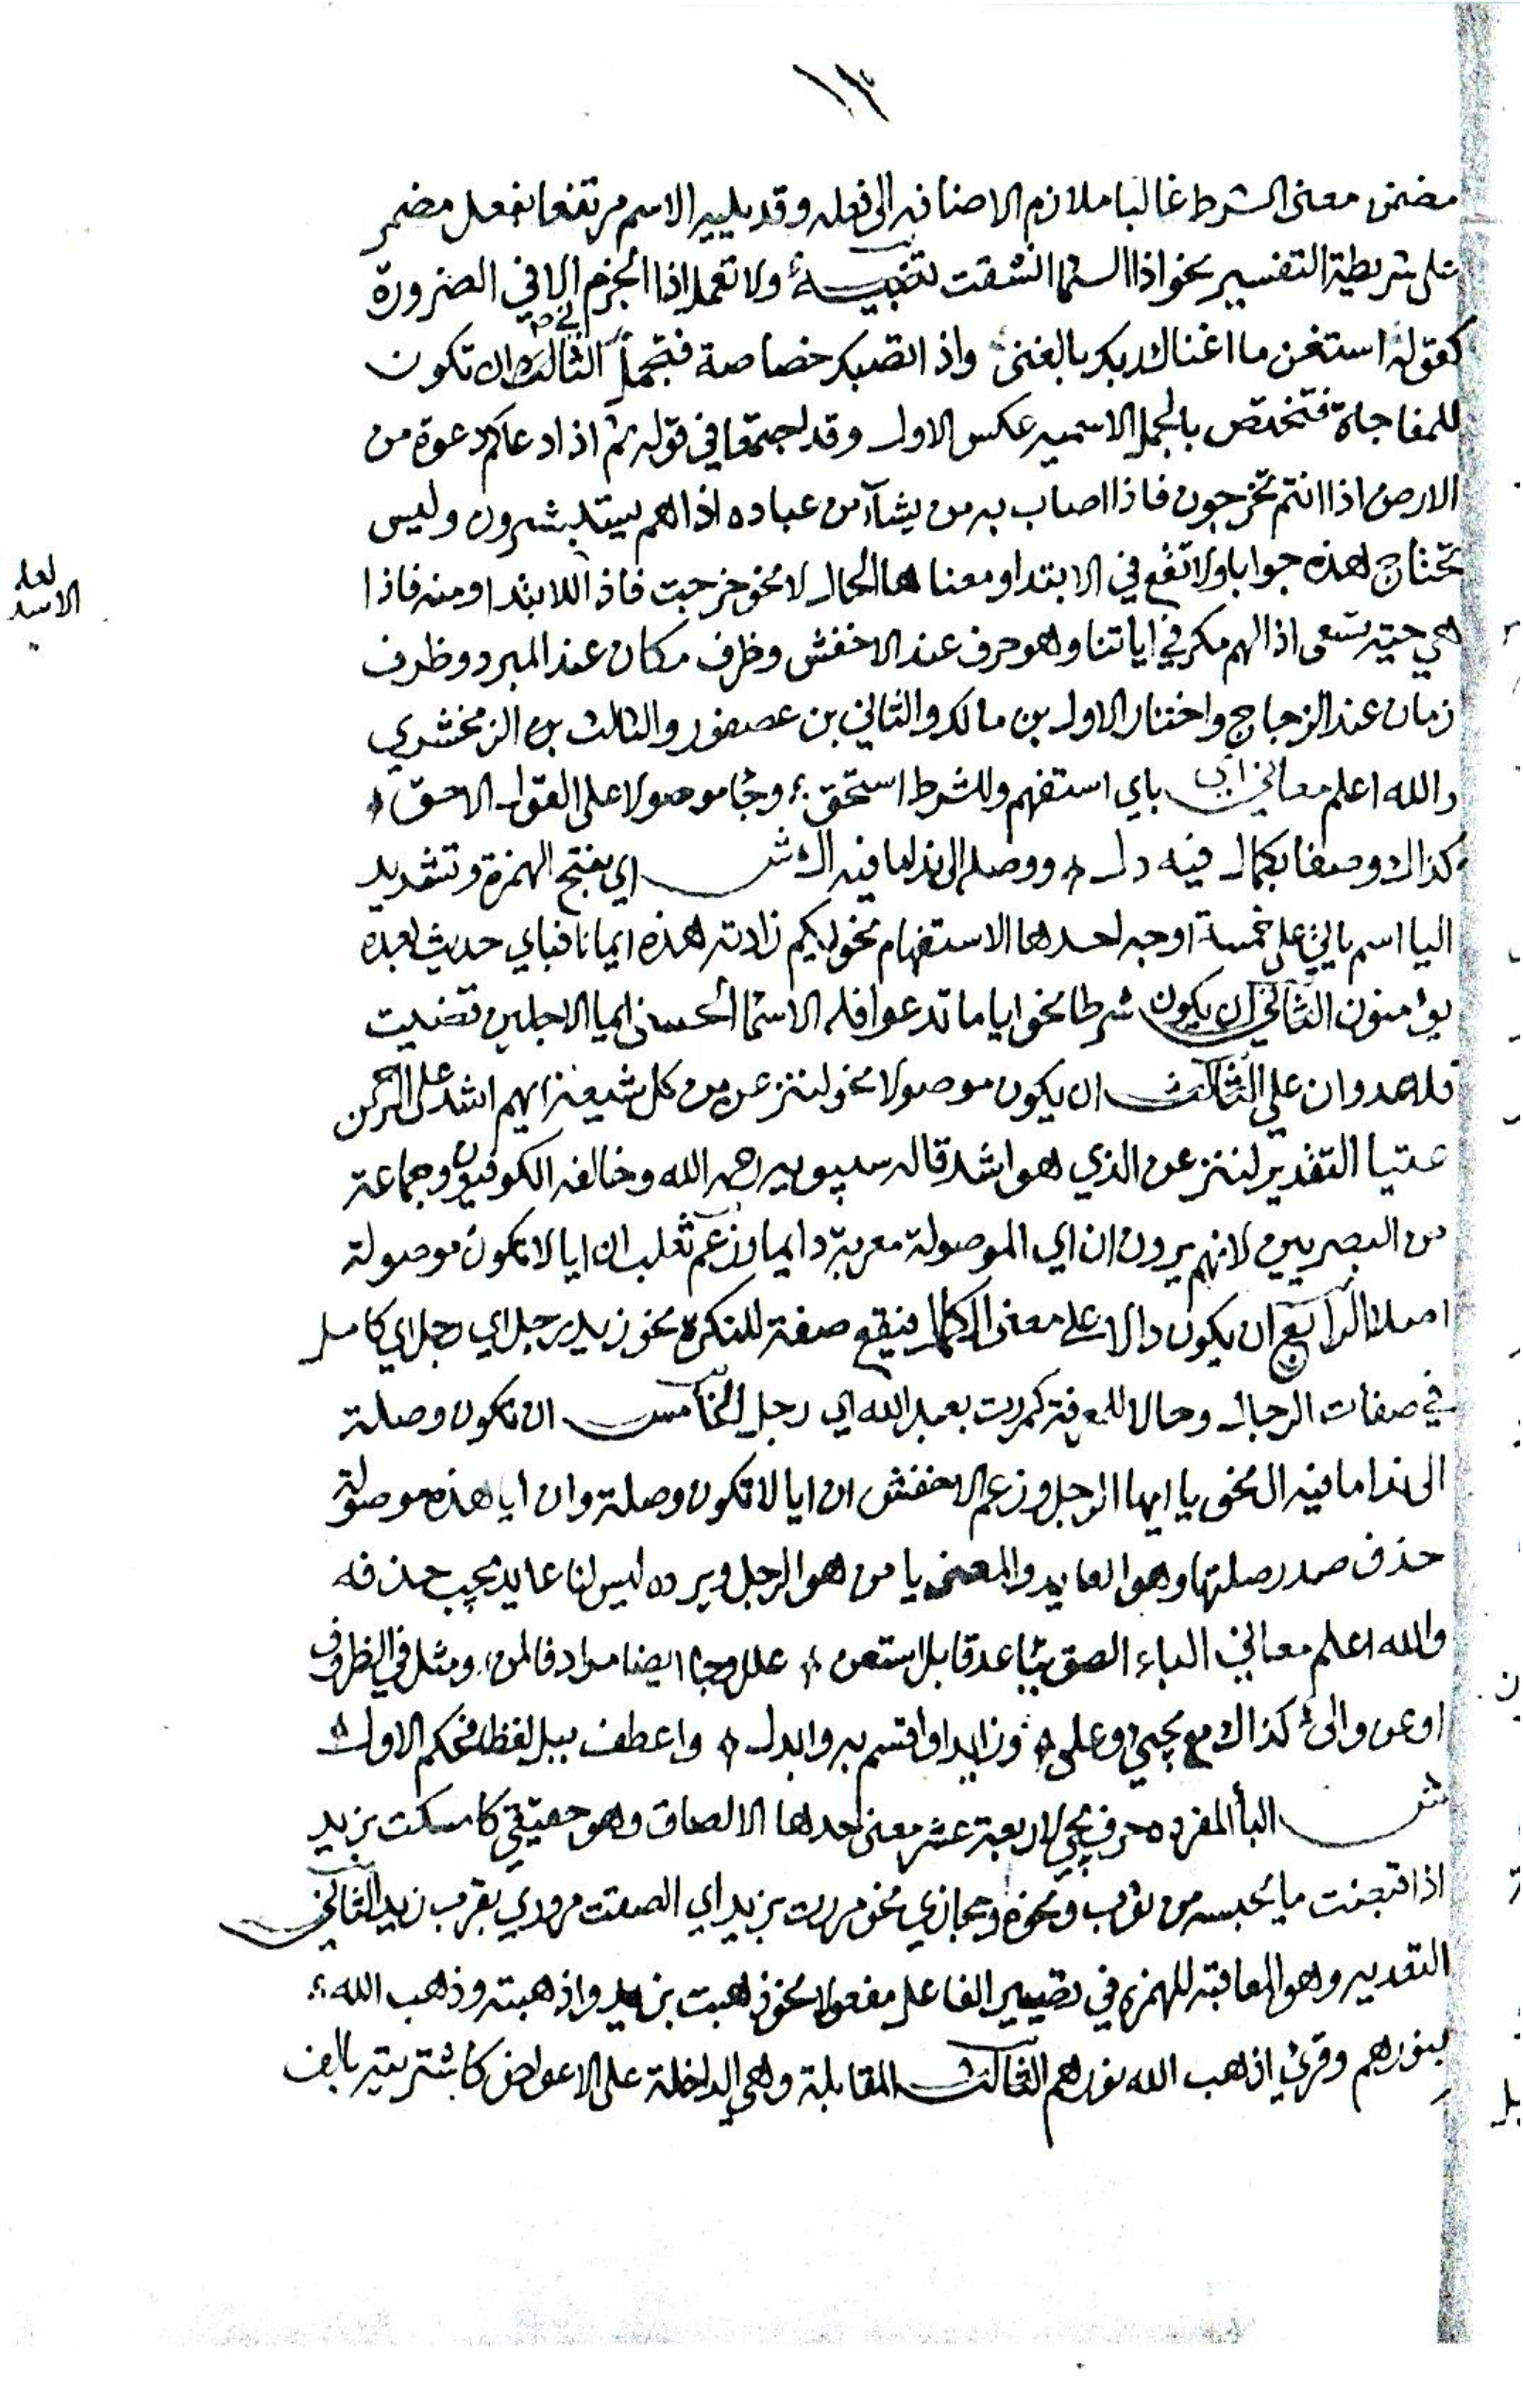 ١٣
مضمن معنى الشرط غالبا ملازم الاضافه الى فعله وقد يليه الاسم مرتفعا بفعل مضمر
على شريطة التفسير نحو اذا السما انشقت تنبيه ولا تعمل اذا الجزم الا في الضرورة
كقوله استغن ما اغناك ربك بالغنى واذا تصبك خصاصة فتجمل الثالث ان تكون
للمفاجاة فتختص بالجمل الاسميه عكس الاول وقد اجتمعا في قوله ثم اذا دعاكم دعوة من
الارض اذا انتم تخرجون فاذا اصاب به من يشآ من عباده اذا هم يستبشرون وليس
تحتاج لهذه جوابا ولا تقع في الابتدا ومعناها الحال لا نحو خرجت فاذا اللابتدا ومنه فاذا
لعله
الاسد
هي حيته تسعى اذا لهم مكر في اياتنا وهو حرف عند الاخفش وظرف مكان عند المبرد وظرف
زمان عند الزجاج واختار الاول بن مالك والثاني بن عصفور والثالث بن الزمخشري
والله اعلم معاني اي باي استفهم وللشرط استحق ؛ وجا موصولا على القول الاحق
كذاك وصفا بكمال فيه دل ۞ ووصله الى ندا ما فيه ال ش اي بفتح الهمزة وتشديد
اليا اسم ياتي على خمسة اوجه احدها الاستفهام نحو ايكم زادته هذه ايمانا فباي حديث بعده
يؤمنون الثاني ان يكون شرطا نحو ايا ما تدعوا فله الاسما الحسنى ايما الاجلين قضيت
فلا عدوان علي الثالث ان يكون موصولا نحو لننزعن من كل شيعة ايهم اشد على الرحمن
عتيا التقدير لننزعن الذي هو اشد قاله سيبويه رحمه الله وخالفه الكوفيون وجماعة
من البصريين لانهم يرون ان اي الموصولة معربة دايما وزعم ثعلب ان ايا لا تكون موصولة
اصلا الرابع ان يكون دالا على معنى الكمال فيقع صفة للنكرة نحو زيد رجل اي رجل اي كامل
في صفات الرجال وحالا للمعرفة كمررت بعبد الله اي رجل الخامس ان تكون وصلة
الى ندا ما فيه ال نحو يا ايها الرجل وزعم الاخفش ان ايا لا تكون وصلة وان ايا هذه موصولة
حذف صدر صلتها وهو العايد والمعنى يا من هو الرجل ويرده ليس لنا عايد يجب حذفه
والله اعلم معاني الباء الصق بباء عد قابل استعن ۞ علل وجا ايضا مرادفا لمن ومثل في الظروف
او عن والى كذاك مع يجي وعلى ۞ وزايدا واقسم به وابدل ۞ واعطف ببل لفظا فحكم الاول
ش البأ المفرده حرف يجي لاربعة عشر معنى احدها الالصاق وهو حقيقي كامسكت بزيد
اذا قبضت ما يحبسه من ثوب ونحوه ومجازي نحو مررت بزيد اي الصقت مروري بقرب زيد الثاني
التعديه وهو المعاقبة للهمزه في تصيير الفاعل مفعولا نحو ذهبت بزيد واذهبته وذهب الله
بنورهم وقرئ اذهب الله نورهم الثالث المقابلة وهي الداخلة على الاعواض كاشتريته بالف